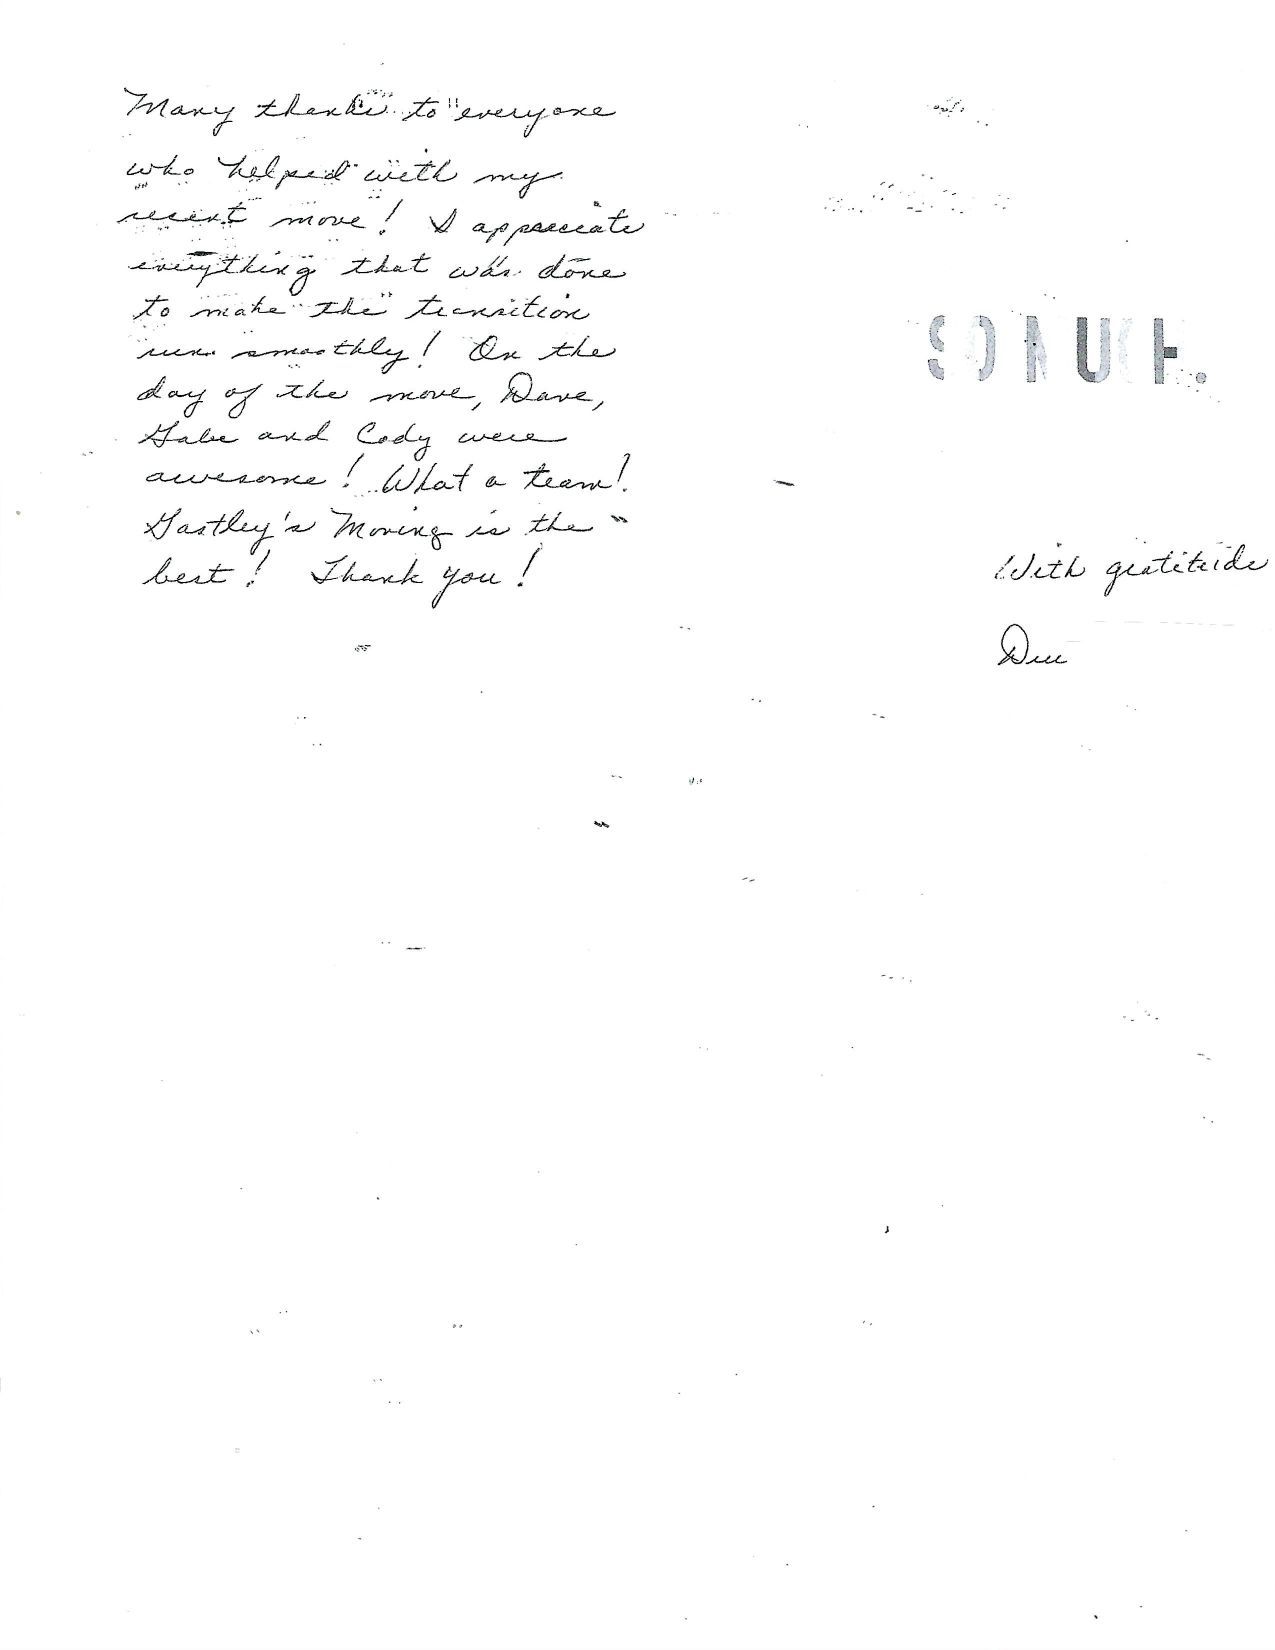 Many thanks to everyone
who helped with my
recent move! I appreciate
everything that was done
to make the transition
run smoothly! On the
day of the move, Dave,
Gabe and Cody were
awesome! What a team!
Gastley's Moving is the
best! Thank you!
SO MUCH.
With gratitude